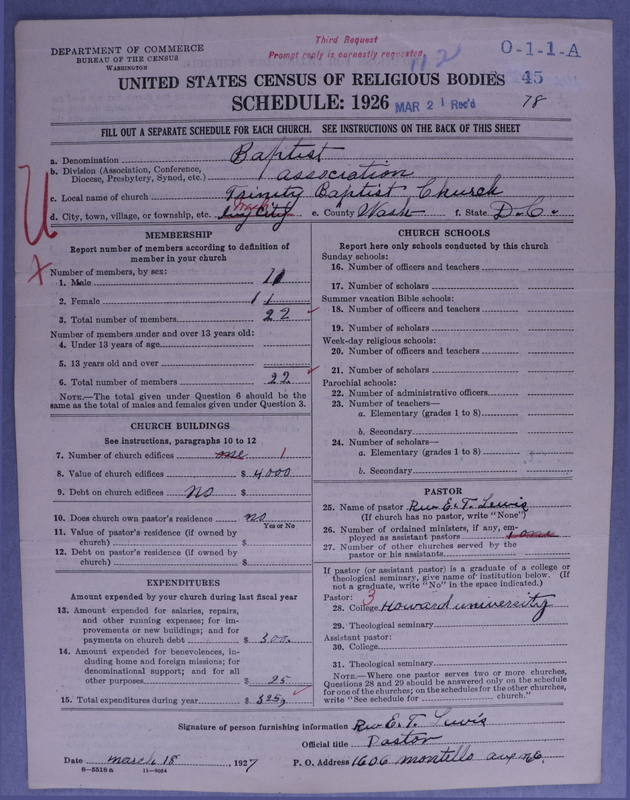 DEPARTMENT OF COMMERCE
BUREAU OF THE CENSUS
WASHINGTON
Third Request
Prompt reply is earnestly requested.
112
O-1-1-A
UNITED STATES CENSUS OF RELIGIOUS BODIES 45
SCHEDULE: 1926 MAR 21 Rec'd 78
FILL OUT A SEPARATE SCHEDULE FOR EACH CHURCH. SEE INSTRUCTIONS ON THE BACK OF THIS SHEET
a. Denomination Baptist
b. Division (Association, Conference,
Diocese, Presbytery, Synod, etc.) association
c. Local name of church Trinity Baptist Church
d. City, town, village, or township, etc. Wash City e. County Wash f. State D.C.
MEMBERSHIP
Report number of members according to definition of
member in your church
Number of members, by sex:
1. Male 11
2. Female 11
3. Total number of members 22
Number of members under and over 13 years old:
4. Under 13 years of age
5. 13 years old and over
6. Total number of members 22
NOTE.—The total given under Question 6 should be the
same as the total of males and females given under Question 3.
CHURCH BUILDINGS
See instructions, paragraphs 10 to 12
7. Number of church edifices one 1
8. Value of church edifices $ 4000
9. Debt on church edifices no $
10. Does church own pastor's residence no
Yes or No
11. Value of pastor's residence (if owned by
church) $
12. Debt on pastor's residence (if owned by
church) $
EXPENDITURES
Amount expended by your church during last fiscal year
13. Amount expended for salaries, repairs,
and other running expenses; for im-
provements or new buildings; and for
payments on church debt $ 300
14. Amount expended for benevolences, in-
cluding home and foreign missions; for
denominational support; and for all
other purposes $ 25
15. Total expenditures during year $ 325
CHURCH SCHOOLS
Report here only schools conducted by this church
Sunday schools:
16. Number of officers and teachers
17. Number of scholars
Summer vacation Bible schools:
18. Number of officers and teachers
19. Number of scholars
Week-day religious schools:
20. Number of officers and teachers
21. Number of scholars
Parochial schools:
22. Number of administrative officers
23. Number of teachers—
a. Elementary (grades 1 to 8)
b. Secondary
24. Number of scholars—
a. Elementary (grades 1 to 8)
b. Secondary
PASTOR
25. Name of pastor Rev E. T. Lewis
(If church has no pastor, write "None")
26. Number of ordained ministers, if any, em-
ployed as assistant pastors 1 one
27. Number of other churches served by the
pastor or his assistants
If pastor (or assistant pastor) is a graduate of a college or
theological seminary, give name of institution below. (If
not a graduate, write "No" in the space indicated.)
Pastor: 3
28. College Howard university
29. Theological seminary
Assistant pastor:
30. College
31. Theological seminary
NOTE.—Where one pastor serves two or more churches,
Questions 28 and 29 should be answered only on the schedule
for one of the churches; on the schedules for the other churches,
write "See schedule for church."
Signature of person furnishing information Rev E. T. Lewis
Official title Pastor
Date march 18, 1927 P. O. Address 1606 montello ave N.E.
8—5518a 11—9054